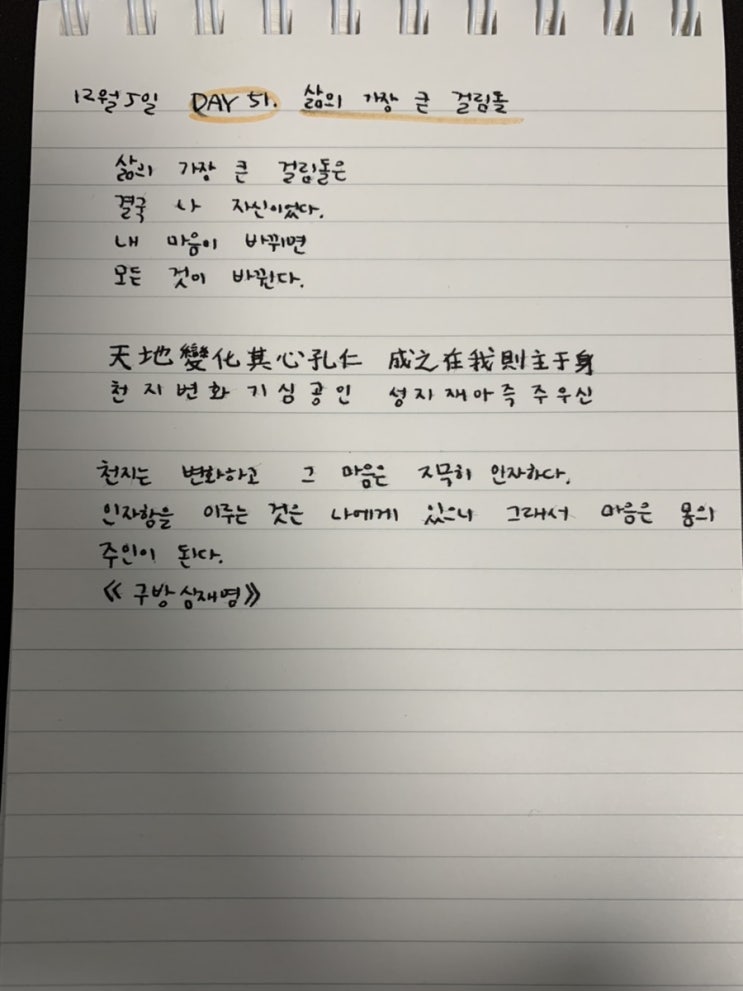 12월 5일 DAY 51. 삶의 가장 큰 걸림돌
삶의 가장 큰 걸림돌은
결국 나 자신이었다.
내 마음이 바뀌면
모든 것이 바뀐다.
天地變化其心孔仁 成之在我則主于身
천지변화기심공인 성지재아즉주우신
천지는 변화하고 그 마음은 지묵히 인자하다.
인자함을 이루는 것은 나에게 있으니 그래서 마음은 몸의
주인이 된다.
《구방심재명》